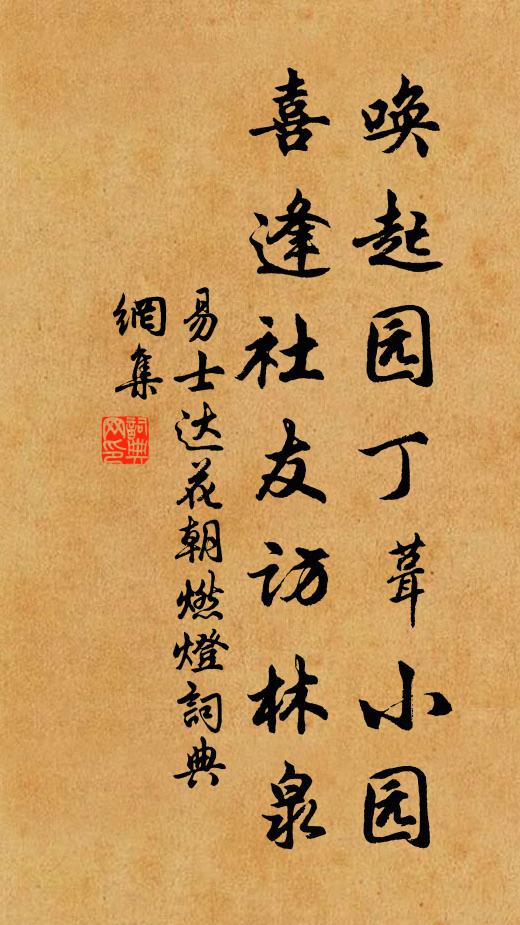 唤起园丁葺小园
喜逢社友访林泉
易士达花朝燃燈詞典
網集
詞典
网印